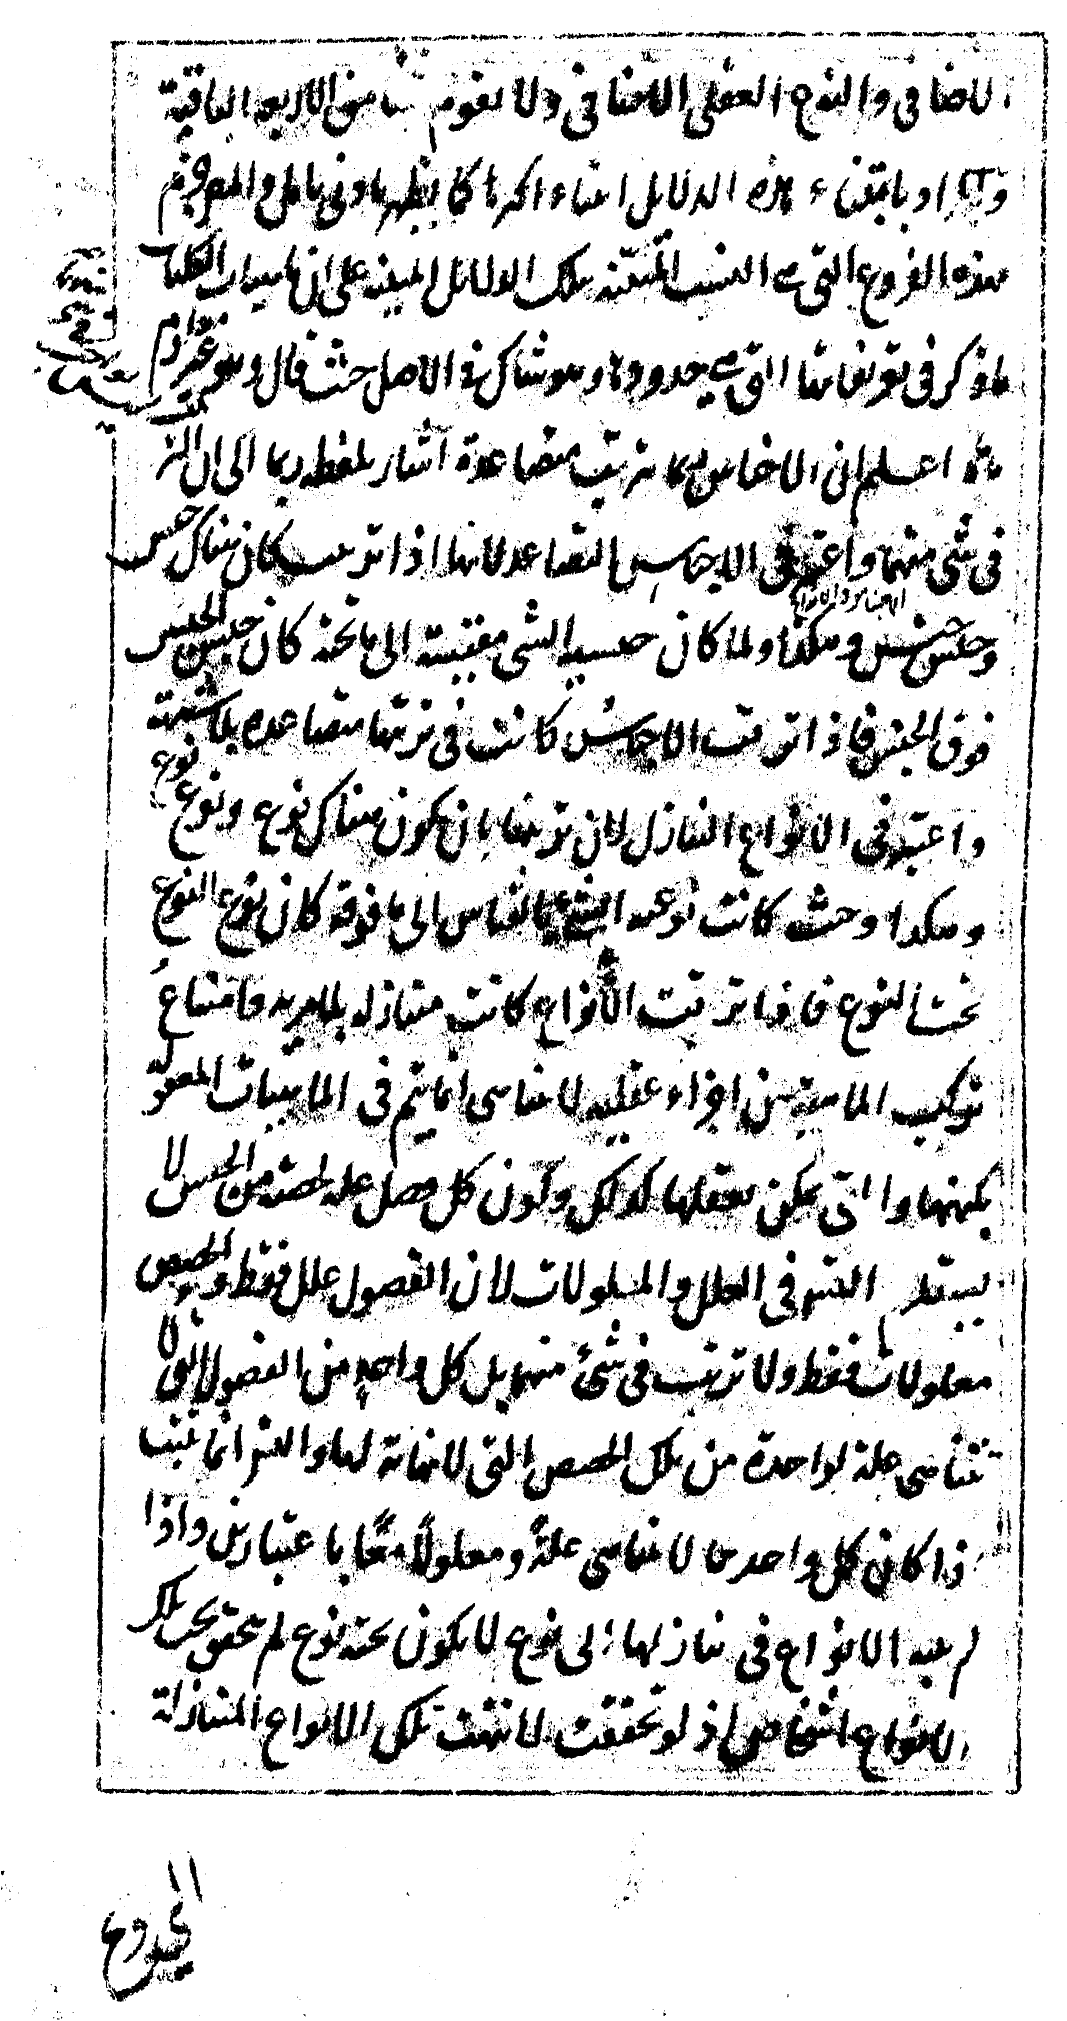 الاضافي والنوع العقلي الاضافي ولا تقوم شئ من الاربعة الباقية
هذه الدلايل انتفاء كما يظهر بادنى تامل والمصر
هذه الفروع التي هي النسب تلك الدلائل على ان ماهيات الكليات
ما ذكر في تعريفاتها التي هي حدودها وهو شاك في الاصل حيث قال وهو
اعلم ان الاجناس ربما تترتب متصاعدة اشار بلفظه ربما الى ان
في شئ منهما واعتبر في الاجناس التصاعد لانها اذا ترتبت كان هناك جنس
وجنس جنس وهكذا ولما كان جنسية الشئ مقيسة الى ما تحته كان جنس الجنس
فوق الجنس فاذا ترتبت الاجناس كانت في ترتبها متصاعدة بلا شبهة
واعتبر في الانواع التنازل لان ترتبها بان يكون هناك نوع ونوع نوع
وهكذا وحيث كانت نوعية الشئ بالقياس الى ما فوقه كان نوع النوع
تحت النوع فاذا ترتبت الانواع كانت متنازلة بلا مرية وامتناع
تركب الماهية من اجزاء عقلية لا تتناهى انما يتم في الماهيات المعقولة
بكنهها والتي يمكن تعقلها كذلك وكون كل فصل علة لحصته من الجنس لا
يستلزم التس في العلل والمعلولات لان الفصول علل فقط والحصص
معلولات فقط ولا ترتب في شئ منهما بل كل واحد من الفصول التي لا
تتناهى علة لواحدة من تلك الحصص التي لا نهاية لها والتس انما يثبت
اذا كان كل واحد مما لا يتناهى علة ومعلولا معا باعتبارين واذا
لم ينته الانواع في تنازلها الى نوع لا يكون تحته نوع لم يتحقق تحت تلك
الانواع اشخاص اذ لو تحققت لانتهت تلك الانواع المتنازلة